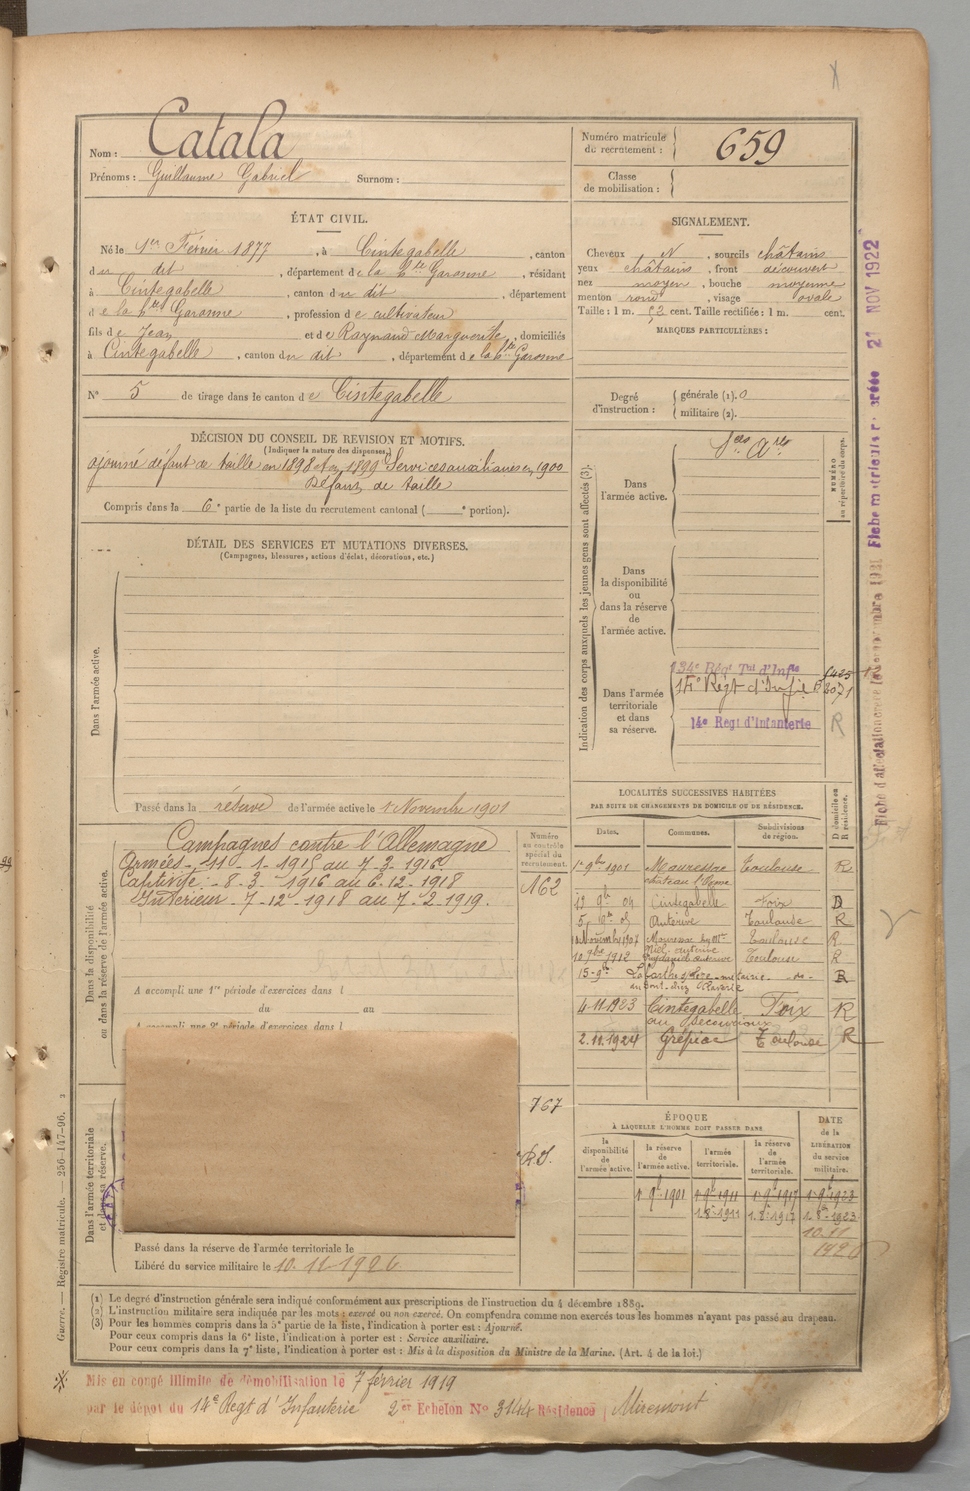 Nom : Catala
Prénoms : Guillaume Gabriel Surnom :
Numéro matricule du recrutement : 659
Classe de mobilisation :
ÉTAT CIVIL.
Né le 1er Février 1877, à Cintegabelle, canton
du dit, département de la Hte Garonne, résidant
à Cintegabelle, canton du dit, département
de la hte Garonne, profession de cultivateur
fils de Jean et de Raynaud Marguerite, domiciliés
à Cintegabelle, canton du dit, département de la hte Garonne
N° 5 de tirage dans le canton de Cintegabelle
SIGNALEMENT.
Cheveux N, sourcils châtains
yeux châtains, front découvert
nez moyen, bouche moyenne
menton rond, visage ovale
Taille : 1 m. cent. Taille rectifiée : 1 m. cent.
MARQUES PARTICULIÈRES :
Degré d'instruction : générale (1). 0
militaire (2).
DÉCISION DU CONSEIL DE REVISION ET MOTIFS.
(Indiquer la nature des dispenses.)
ajourné défaut de taille en 1898 et en 1899 Services auxiliaires en 1900
Défaut de taille
Compris dans la 6e partie de la liste du recrutement cantonal ( e portion).
DÉTAIL DES SERVICES ET MUTATIONS DIVERSES.
(Campagnes, blessures, actions d'éclat, décorations, etc.)
Dans l'armée active.
Passé dans la réserve de l'armée active le 1 Novembre 1901
Indication des corps auxquels les jeunes gens sont affectés (3).
NUMÉRO au répertoire du corps.
Dans l'armée active.
Dans la disponibilité ou dans la réserve de l'armée active.
Dans l'armée territoriale et dans sa réserve.
134e Régt Tal d'Infie
14e Régt d'Infie
14e Régt d'Infanterie
R
Dans la disponibilité ou dans la réserve de l'armée active.
Campagnes contre l'Allemagne
Armées - 11 - 1 - 1915 au 7-3-1916
Captivité - 8-3- 1916 au 6-12-1918
Intérieur - 7-12-1918 au 7-2-1919.
Numéro au contrôle spécial du recrutement.
162
A accompli une 1re période d'exercices dans l
du au
A accompli une 2e période d'exercices dans l
LOCALITÉS SUCCESSIVES HABITÉES
PAR SUITE DE CHANGEMENTS DE DOMICILE OU DE RÉSIDENCE.
D domicile ou R résidence.
Dates. Communes. Subdivisions de région.
1er 9bre 1901 Mauressac Toulouse R
Cintegabelle Foix D
Auterive Toulouse R
Novembre 1907 Mauressac Toulouse R
10 9bre 1912 Toulouse R
R
4-11-1923 Cintegabelle Foix R
2.11.1924 Grépiac Toulouse R
Dans l'armée territoriale et dans sa réserve.
767
ÉPOQUE
À LAQUELLE L'HOMME DOIT PASSER DANS
la disponibilité de l'armée active.
la réserve de l'armée active.
l'armée territoriale.
la réserve de l'armée territoriale.
DATE de la LIBÉRATION du service militaire.
1er 9b 1901 1er 9b 1911 1er 9b 1917 1er 9b 1923
1.8-1911 1.8-1917 1.8-1923
10.11
1926
Passé dans la réserve de l'armée territoriale le
Libéré du service militaire le 10.11-1926
(1) Le degré d'instruction générale sera indiqué conformément aux prescriptions de l'instruction du 4 décembre 1889.
(2) L'instruction militaire sera indiquée par les mots : exercé ou non exercé. On comprendra comme non exercés tous les hommes n'ayant pas passé au drapeau.
(3) Pour les hommes compris dans la 5e partie de la liste, l'indication à porter est : Ajourné.
Pour ceux compris dans la 6e liste, l'indication à porter est : Service auxiliaire.
Pour ceux compris dans la 7e liste, l'indication à porter est : Mis à la disposition du Ministre de la Marine. (Art. 4 de la loi.)
Mis en congé illimité de démobilisation le 7 février 1919
par le dépôt du 14e Régt d'Infanterie 2e Echelon N° 3144 Résidence Miremont
Guerre. — Registre matricule. — 256-147-96.
21 NOV 1922